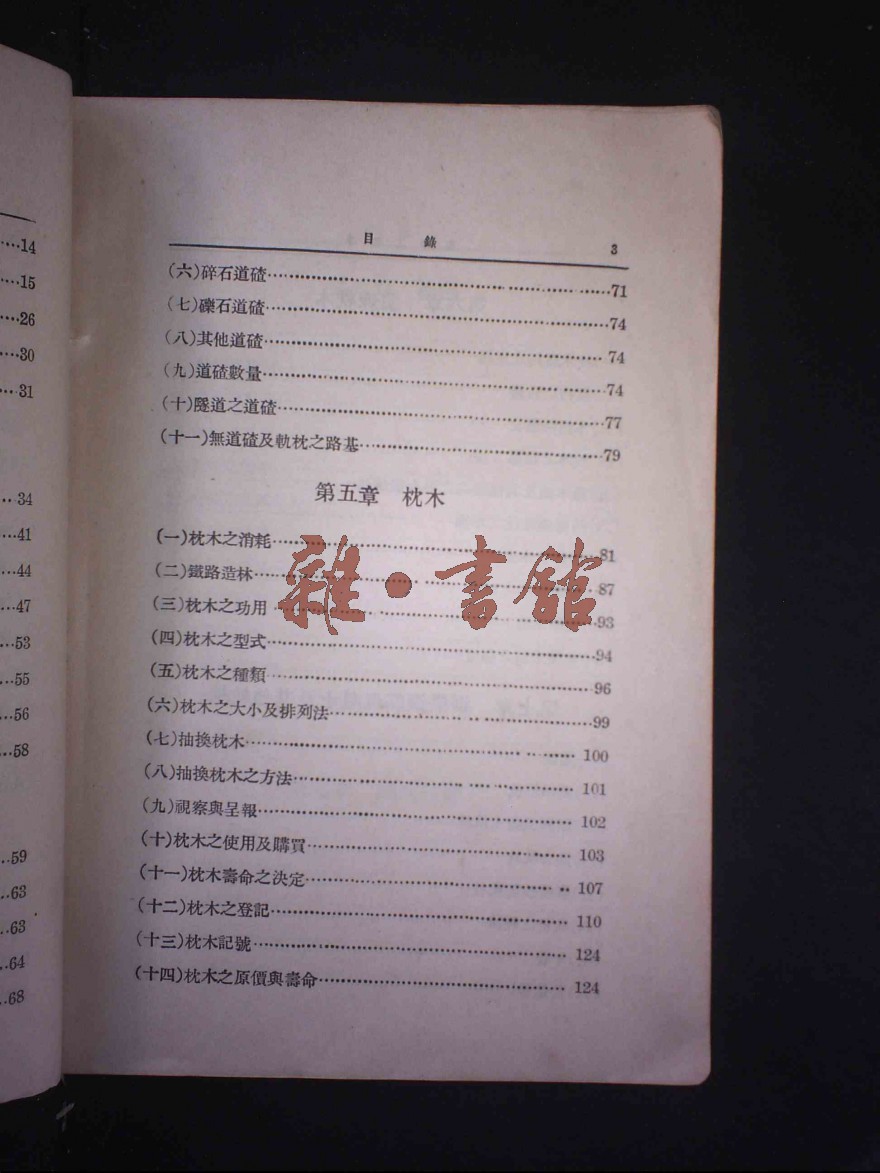 14
15
26
30
31
34
41
44
47
53
55
56
58
59
63
63
64
68
目錄 3
(六)碎石道碴……71
(七)礫石道碴……74
(八)其他道碴……74
(九)道碴數量……74
(十)隧道之道碴……77
(十一)無道碴及軌枕之路基……79
第五章 枕木
(一)枕木之消耗……81
(二)鐵路造林……87
(三)枕木之功用……93
(四)枕木之型式……94
(五)枕木之種類……96
(六)枕木之大小及排列法……99
(七)抽換枕木……100
(八)抽換枕木之方法……101
(九)視察與呈報……102
(十)枕木之使用及購買……103
(十一)枕木壽命之決定……107
(十二)枕木之登記……110
(十三)枕木記號……124
(十四)枕木之原價與壽命……124
雜·書館